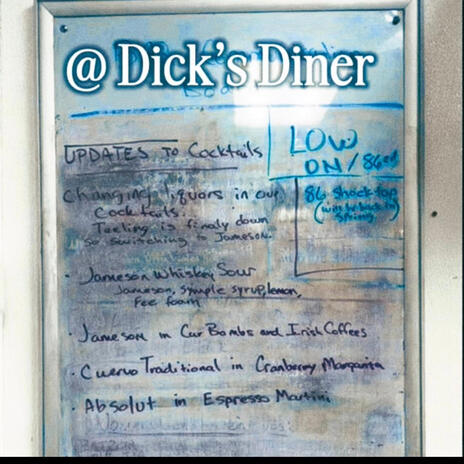 @ Dick's Diner
UPDATES To Cocktails
Changing liquors in our
Cocktails.
Teeling is finaly down
so switching to Jameson.
· Jameson Whiskey Sour
Jameson, symple syrup, lemon,
Fee foam
· Jameson in Car Bombs and Irish Coffees
· Cuervo Traditional in Cranberry Margarita
· Absolut in Espresso Martini
LOW
ON/86ed
86 Shocktop
(will be back in
Spring)